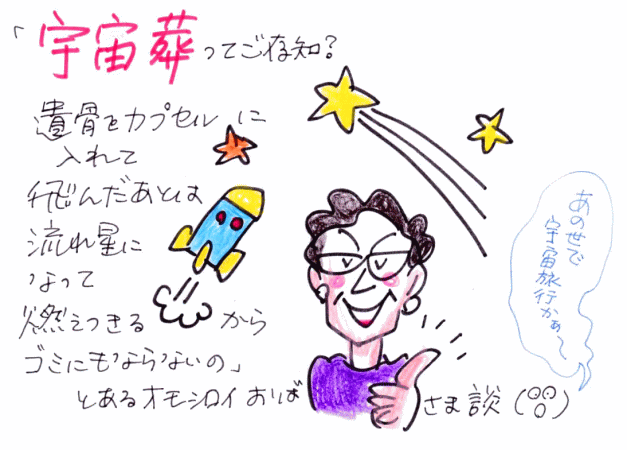 「宇宙葬ってご存知?
遺骨をカプセルに
入れて
飛んだあとは
流れ星に
なって
燃えつきるから
ゴミにもならないの」
とあるオモシロイおばさま談
あの世で
宇宙旅行かぁ〜